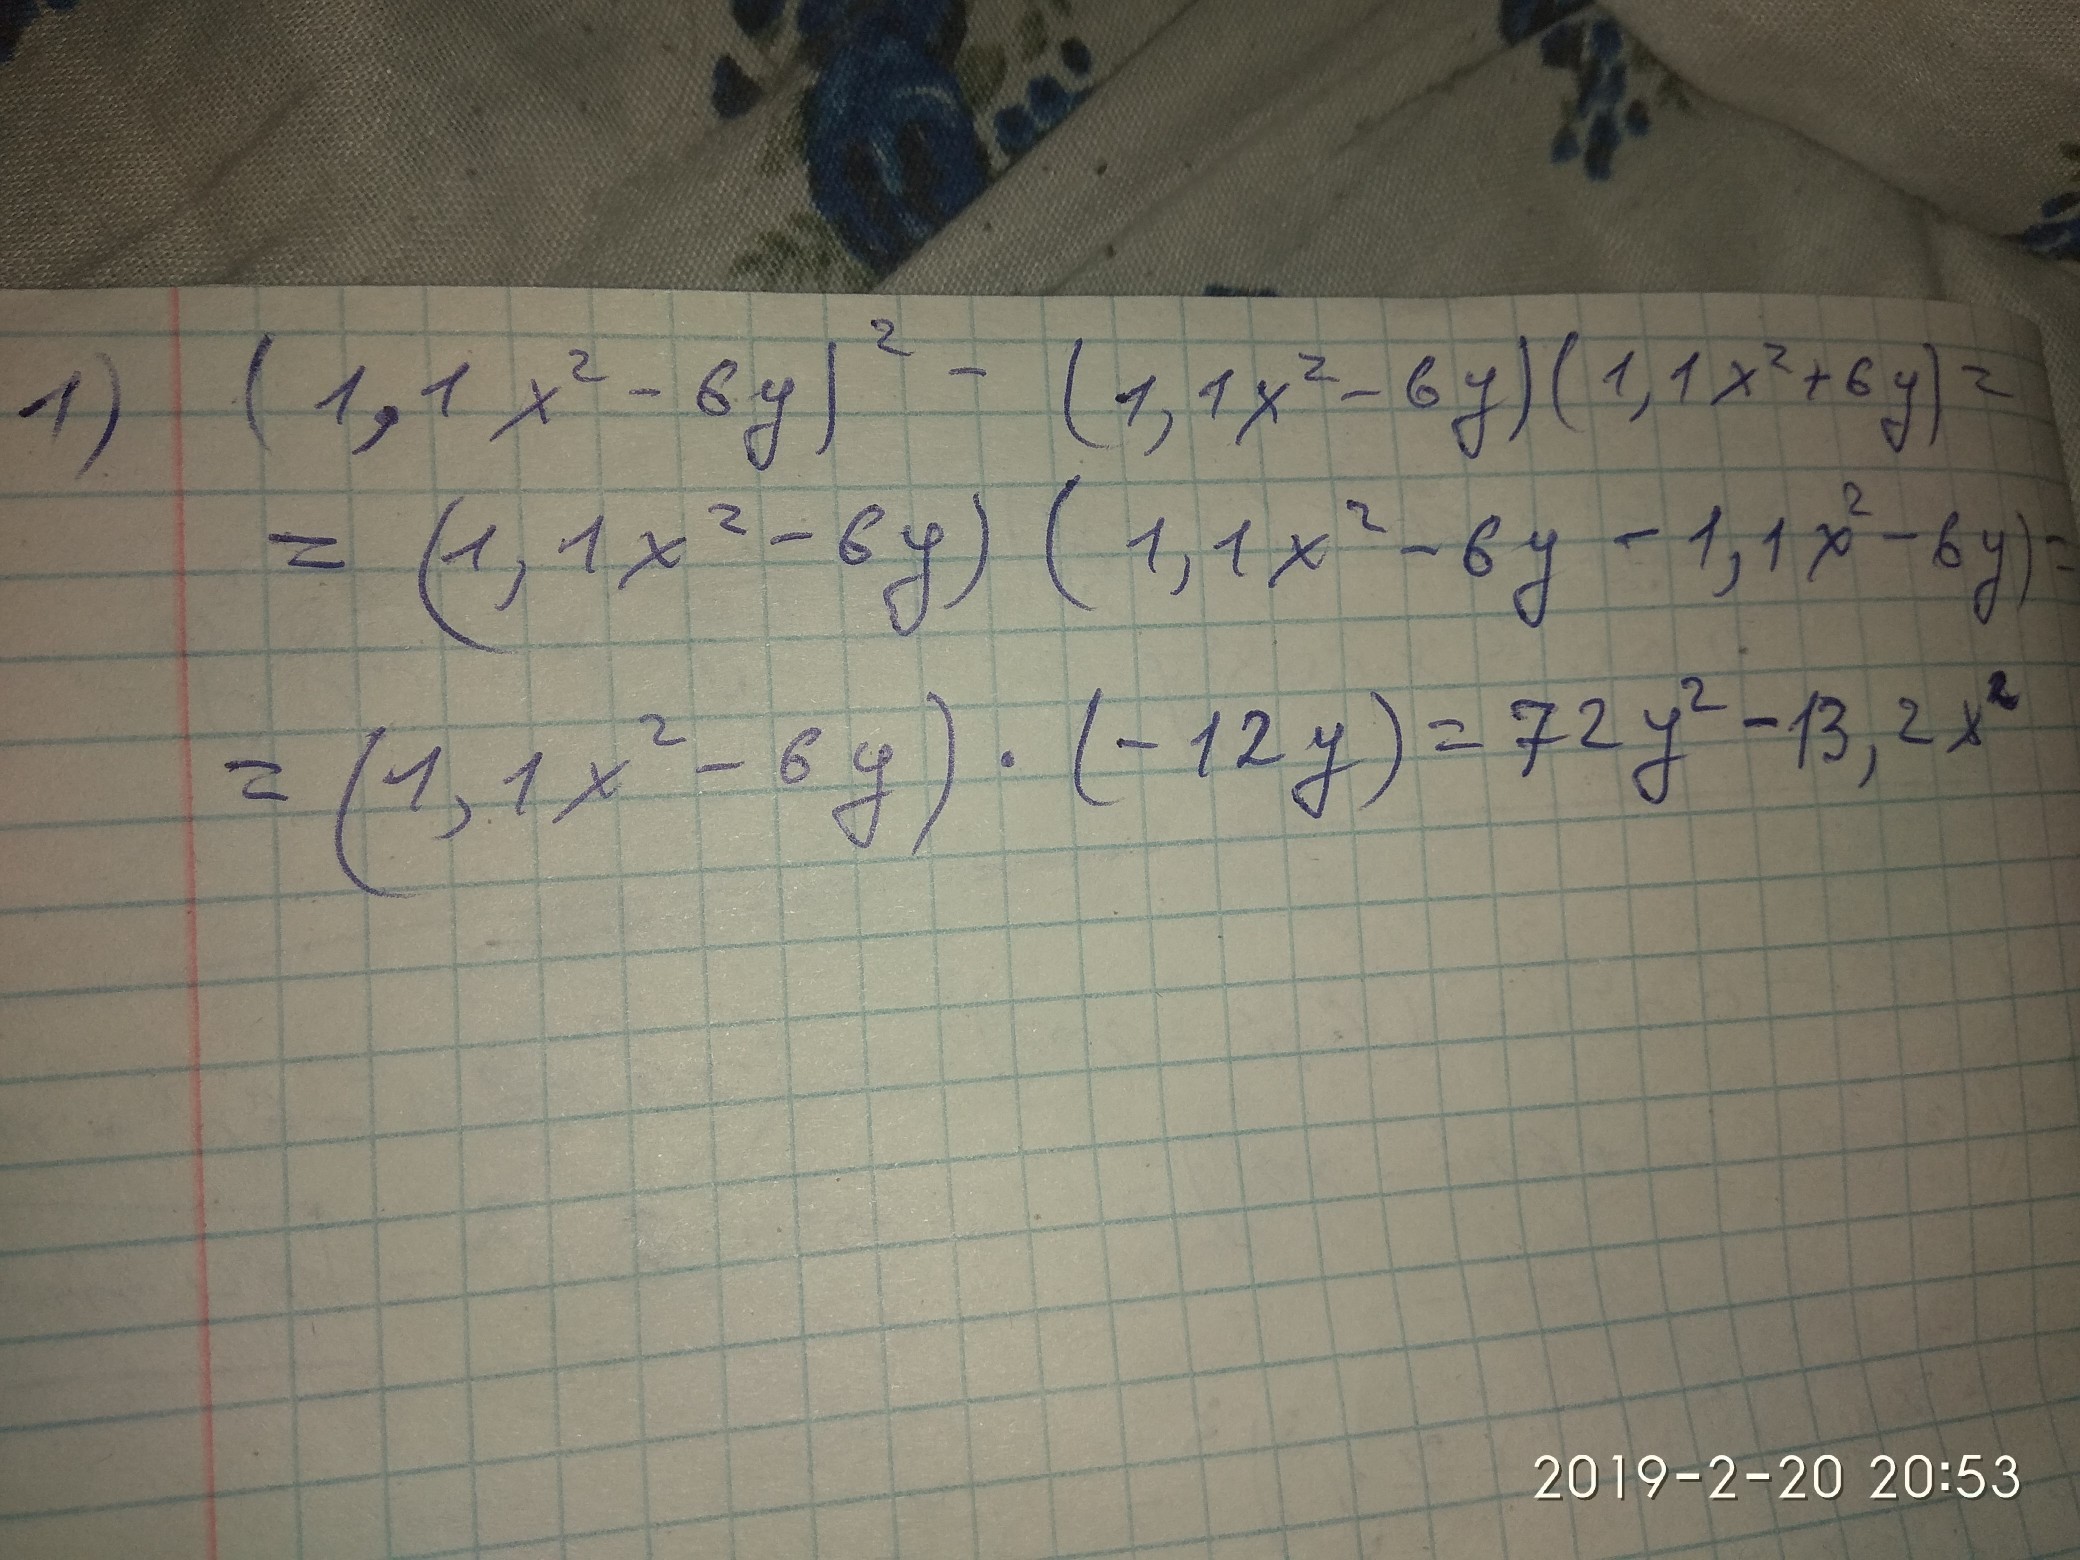 1) (1,1x²-6y)² - (1,1x²-6y)(1,1x²+6y)=
= (1,1x²-6y)(1,1x²-6y-1,1x²-6y)=
= (1,1x²-6y)·(-12y)=72y²-13,2x²
2019-2-20 20:53